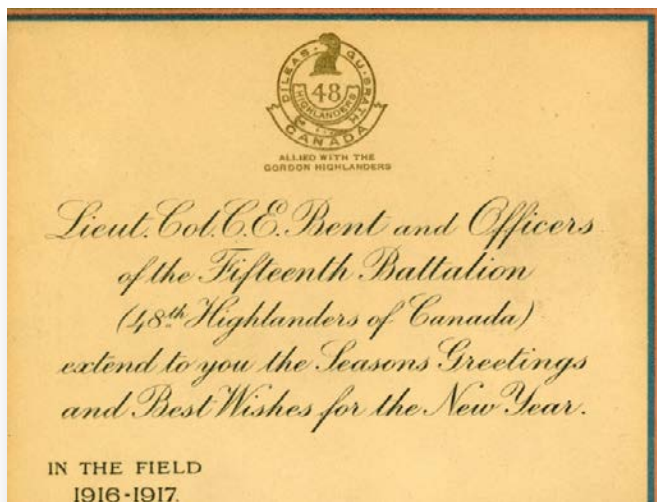 DILEAS · GU · BRATH
48
HIGHLANDERS
CANADA
ALLIED WITH THE
GORDON HIGHLANDERS
Lieut. Col. C. E. Bent and Officers
of the Fifteenth Battalion
(48th Highlanders of Canada)
extend to you the Seasons Greetings
and Best Wishes for the New Year.
IN THE FIELD
1916-1917.